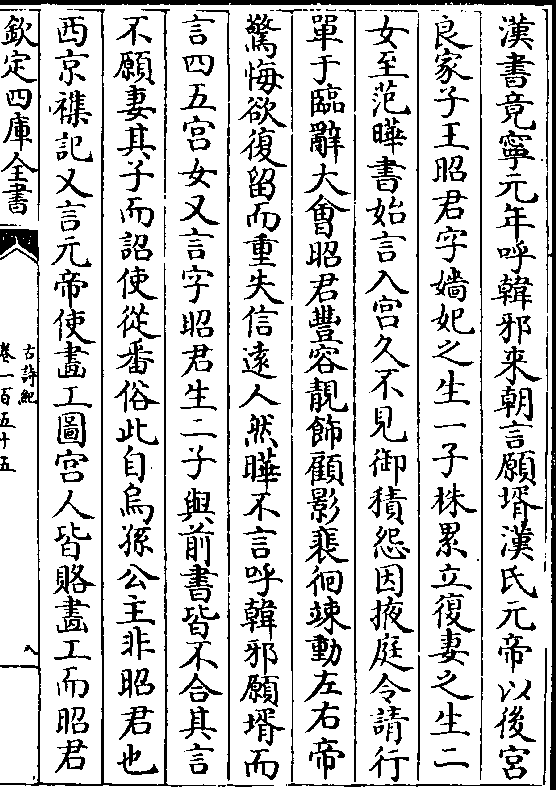 漢書竟寧元年呼韓邪來朝言願壻漢氏元帝以後宫
良家子王昭君字嬙妃之生一子株累立復妻之生二
女至范曄書始言入宫久不見御積怨因掖庭令請行
單于臨辭大會昭君豐容靚飾顧影裴徊竦動左右帝
驚悔欲復留而重失信逺人然曄不言呼韓邪願壻而
言四五宫女又言字昭君生二子與前書皆不合其言
不願妻其子而詔使從番俗此自烏孫公主非昭君也
西京襍記又言元帝使畫工圖宫人皆賂畫工而昭君
欽定四庫全書
古詩紀
卷一百五十五
八